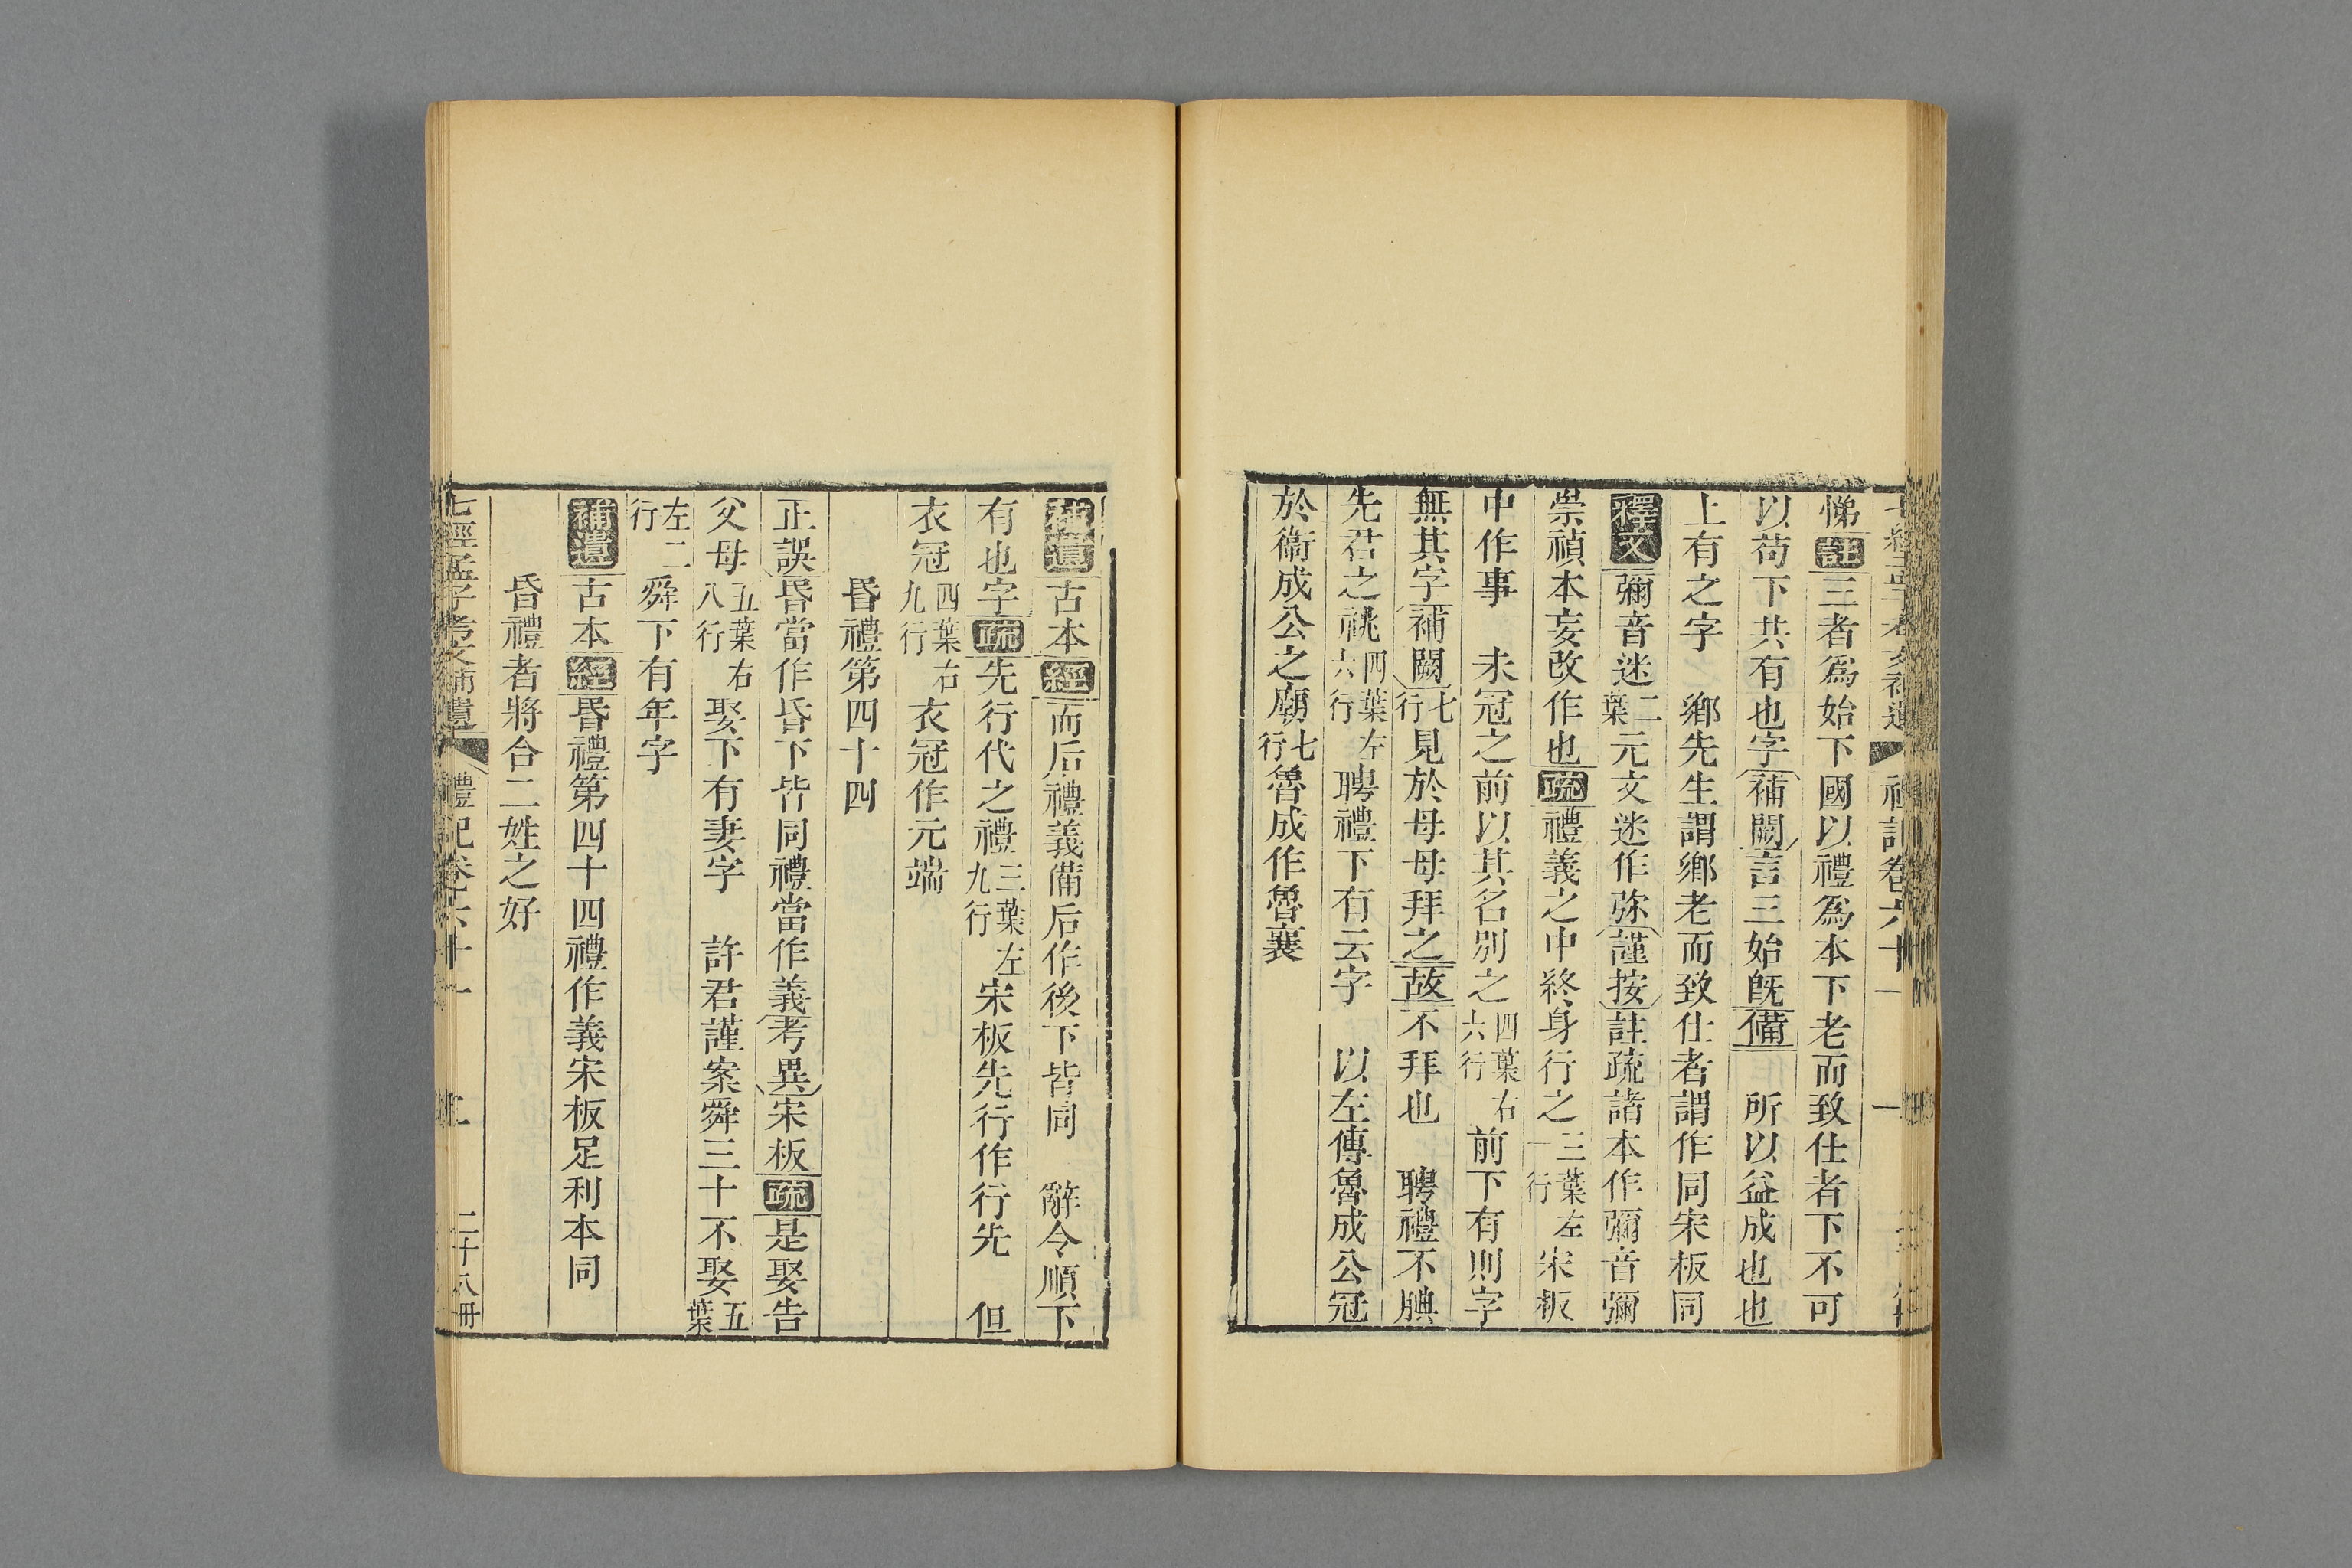 悌註三者爲始下國以禮爲本下老而致仕者下不可
以苟下共有也字補闕言三始旣備 所以益成也也
上有之字 鄉先生謂鄉老而致仕者謂作同宋板同
釋文彌音迷二葉元文迷作弥謹按註疏諸本作彌音彌
崇禎本妄改作也疏禮義之中終身行之三葉左一行宋板
中作事 未冠之前以其名別之四葉右六行前下有則字
無其字補闕七行見於母母拜之故不拜也 聘禮不腆
先君之祧四葉左六行聘禮下有云字 以左傳魯成公冠
於衞成公之廟七行魯成作魯襄
補遺古本經而后禮義備后作後下皆同 辭令順下
有也字疏先行代之禮三葉左九行宋板先行作行先 但
衣冠四葉右九行衣冠作元端
昬禮第四十四
正誤昬當作昏下皆同禮當作義考異宋板疏是娶告
父母五葉右八行娶下有妻字 許君謹案舜三十不娶五葉
左二行舜下有年字
補遺古本經昬禮第四十四禮作義宋板足利本同
昏禮者將合二姓之好
七經孟子考文補遺 禮記卷六十一 二十八冊